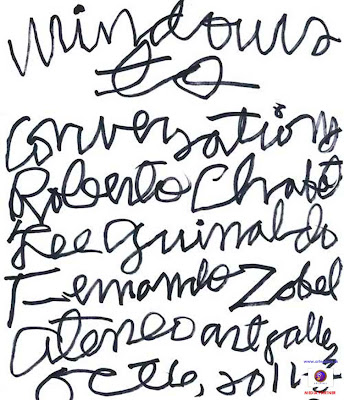 windows
to
conversations
Roberto Chabet
Lee Aguinaldo
Fernando Zobel
Ateneo art galle
Oct 6, 2011